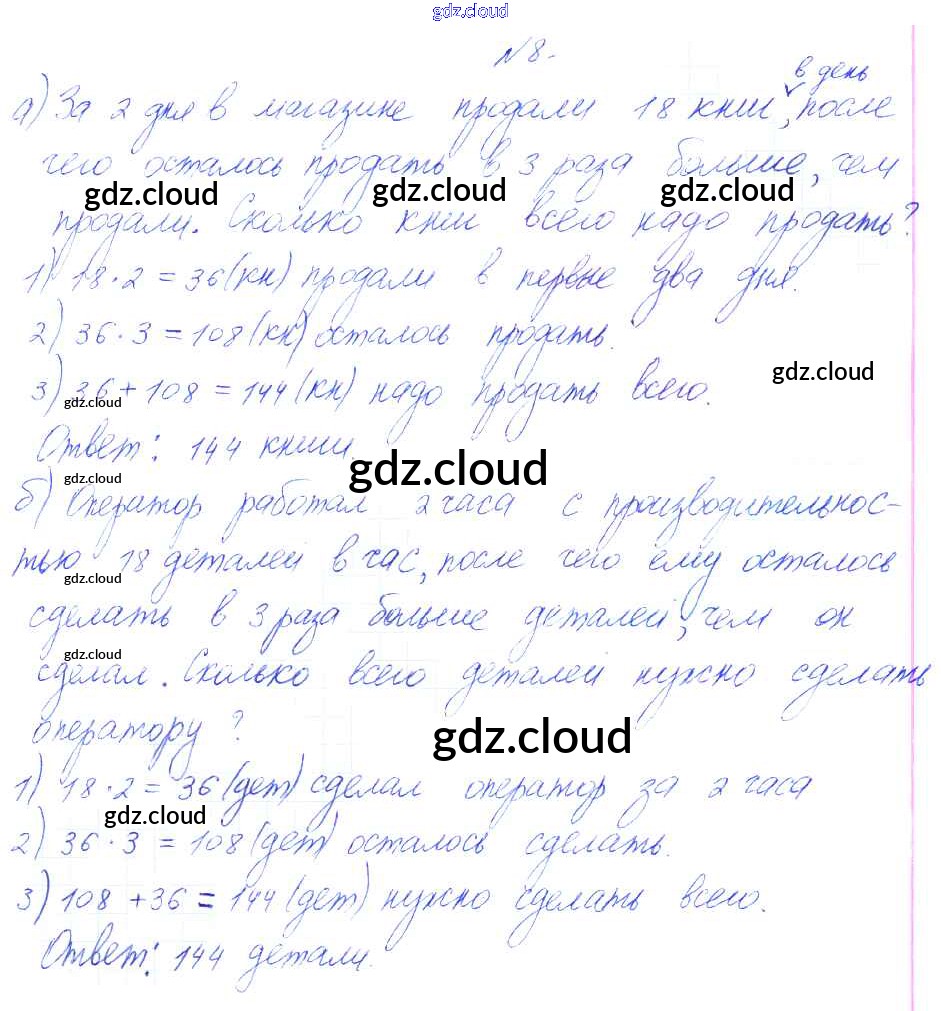 gdz.cloud
№8.
в день
а) За 2 дня в магазине продали 18 книг, после
чего осталось продать в 3 раза больше, чем
gdz.cloud gdz.cloud gdz.cloud
продали. Сколько книг всего надо продать?
1) 18·2 = 36 (кн) продали в первые два дня.
2) 36·3 = 108 (кн) осталось продать.
gdz.cloud
3) 36 + 108 = 144 (кн) надо продать всего.
gdz.cloud
Ответ: 144 книги.
gdz.cloud
gdz.cloud
б) Оператор работал 2 часа с производительнос-
тью 18 деталей в час, после чего ему осталось
gdz.cloud
сделать в 3 раза больше деталей, чем он
gdz.cloud
сделал. Сколько всего деталей нужно сделать
оператору?
gdz.cloud
1) 18·2 = 36 (дет) сделал оператор за 2 часа
gdz.cloud
2) 36·3 = 108 (дет) осталось сделать.
3) 108 + 36 = 144 (дет) нужно сделать всего.
Ответ: 144 детали.